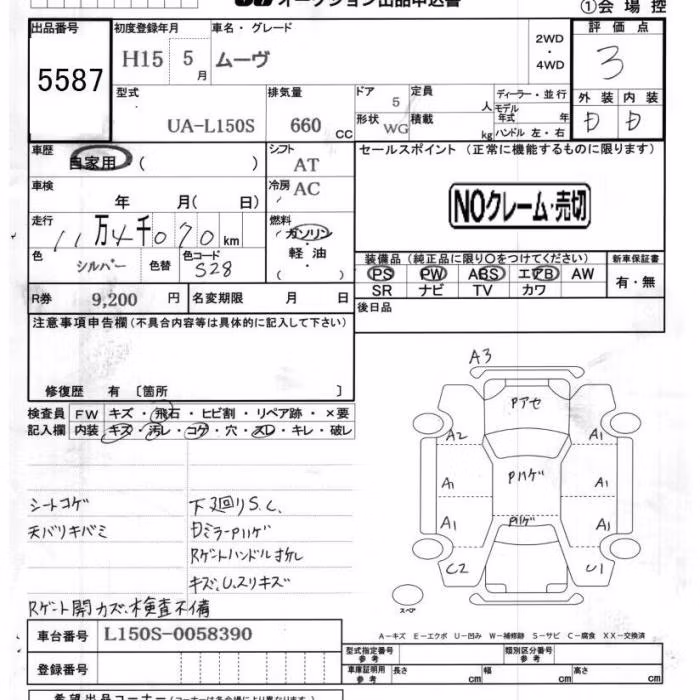 オークション出品申込書
①会場控
出品番号 初度登録年月 車名・グレード 評価点
5587 H15 5月 ムーヴ 2WD・4WD 3
型式 排気量 ドア 定員 ディーラー・並行 外装 内装
UA-L150S 660 CC 5 人 モデル年式 年 D D
形状 WG 積載 kg ハンドル 左・右
車歴 シフト セールスポイント (正常に機能するものに限ります)
自家用 ( ) AT
車検 冷房 AC
年 月( 日) NOクレーム・売切
走行 燃料
11万4千070km ガソリン・軽油 ( )
色 シルバー 色替 色コード S28
装備品 (純正品に限り○をつけてください) 新車保証書
PS PW ABS エアB AW 有・無
SR ナビ TV カワ
R券 9,200 円 名変期限 月 日
後日品
注意事項申告欄 (不具合内容等は具体的に記入して下さい)
修復歴 有 〔箇所 〕
検査員 FW キズ・飛石・ヒビ割・リペア跡・×要
記入欄 内装 キズ・汚レ・コゲ・穴・スレ・キレ・破レ
A3
Pアセ
A2 A1
A1 Pハゲ A1
A1 Pハゲ A1
C2 U1
スペア
シートコゲ 下廻りS.C.
天バリキバミ Dミラー Pハゲ
Rゲートハンドルオカシ
キズ、U、スリキズ
Rゲート開カズ、検査不備
A-キズ E-エクボ U-凹み W-補修跡 S-サビ C-腐食 XX-交換済
車台番号 L150S-0058390
登録番号
型式指定番号 参考 類別区分番号 参考
車庫証明用 参考 長さ cm 幅 cm 高さ cm
希望出品コーナー